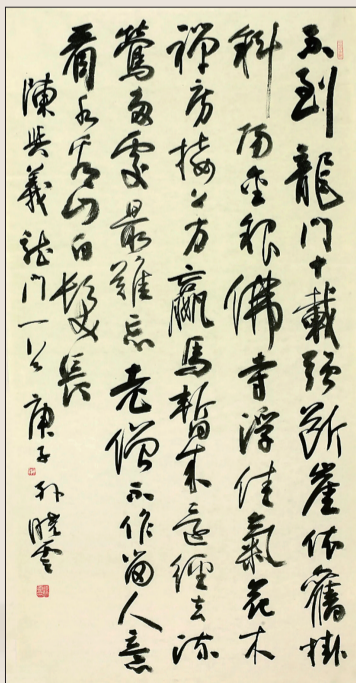 不到龍門十載強斷崖依舊掛
斜陽金銀佛寺浮佳氣花木
禪房接上方羸馬暫來還徑去流
鶯多處最難忘老僧不作留人意
看水看山白髮長
陳與義龍門一首 庚子 孫曉雲